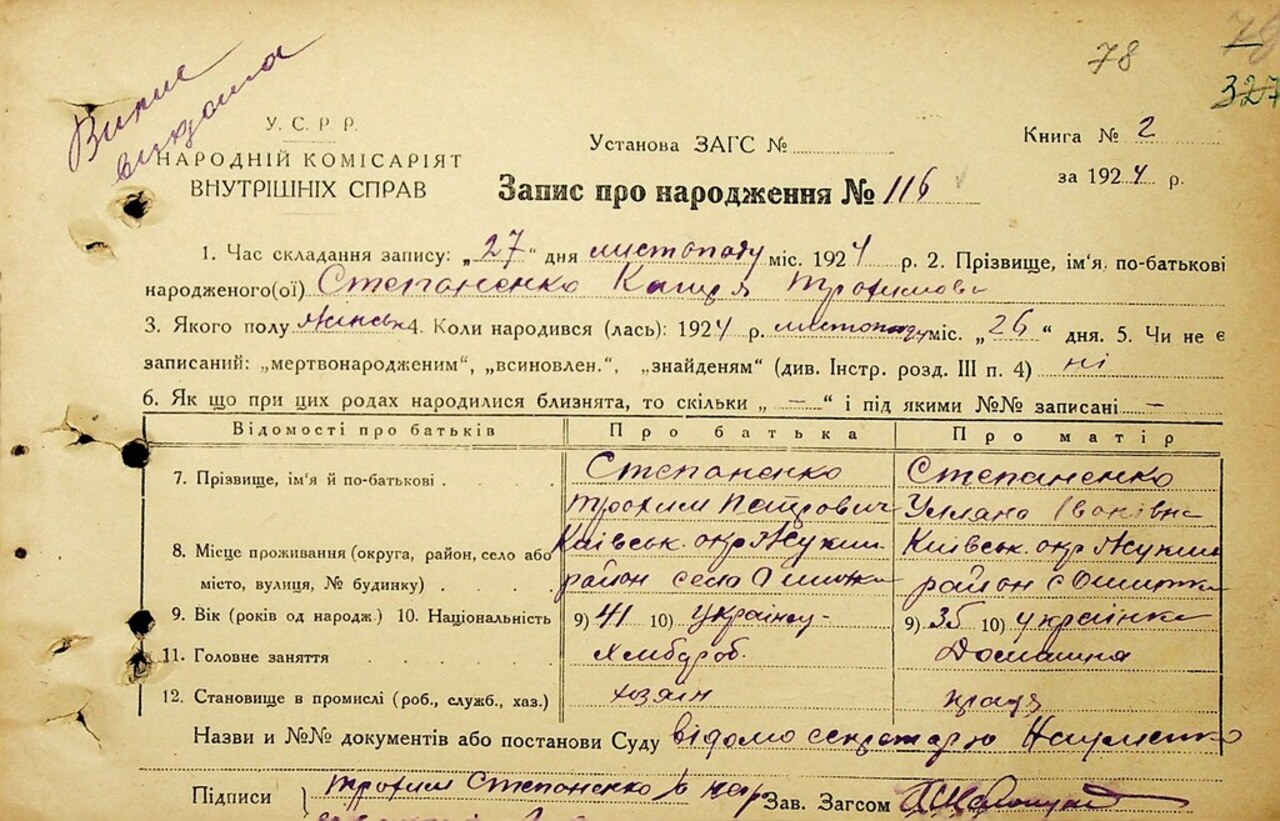 78
79
327
Випис
видана
У. С. Р. Р.
НАРОДНІЙ КОМІСАРІЯТ
ВНУТРІШНІХ СПРАВ
Установа ЗАГС №
Книга № 2
за 1924 р.
Запис про народження № 116
1. Час складання запису: „27“ дня листопаду міс. 1924 р. 2. Прізвище, ім'я, по-батькові
народженого(ої) Степаненко Катря Трохимова
3. Якого полу жіноч. 4. Коли народився (лась): 1924 р. листопаду міс. „26“ дня. 5. Чи не є
записаний: „мертвонародженим“, „всиновлен.“, „знайденям“ (див. Інстр. розд. III п. 4) ні
6. Як що при цих родах народилися близнята, то скільки „ — “ і під якими №№ записані —
Відомості про батьків Про батька Про матір
7. Прізвище, ім'я й по-батькові Степаненко Степаненко
Трохим Петрович Уляна Іванівна
8. Місце проживання (округа, район, село або Київськ. окр Жукин Київськ. окр Жукин
місто, вулиця, № будинку) район село Ошитки район с Ошитки
9. Вік (років од народж.) 10. Національність 9) 41 10) українец 9) 35 10) українка
11. Головне заняття Хлібороб. Домашня
12. Становище в промислі (роб., служб., хаз.) хозяїн праця
Назви и №№ документів або постанови Суду відомо секретарю Науменко
Підписи Трохим Степаненко Зав. Загсом